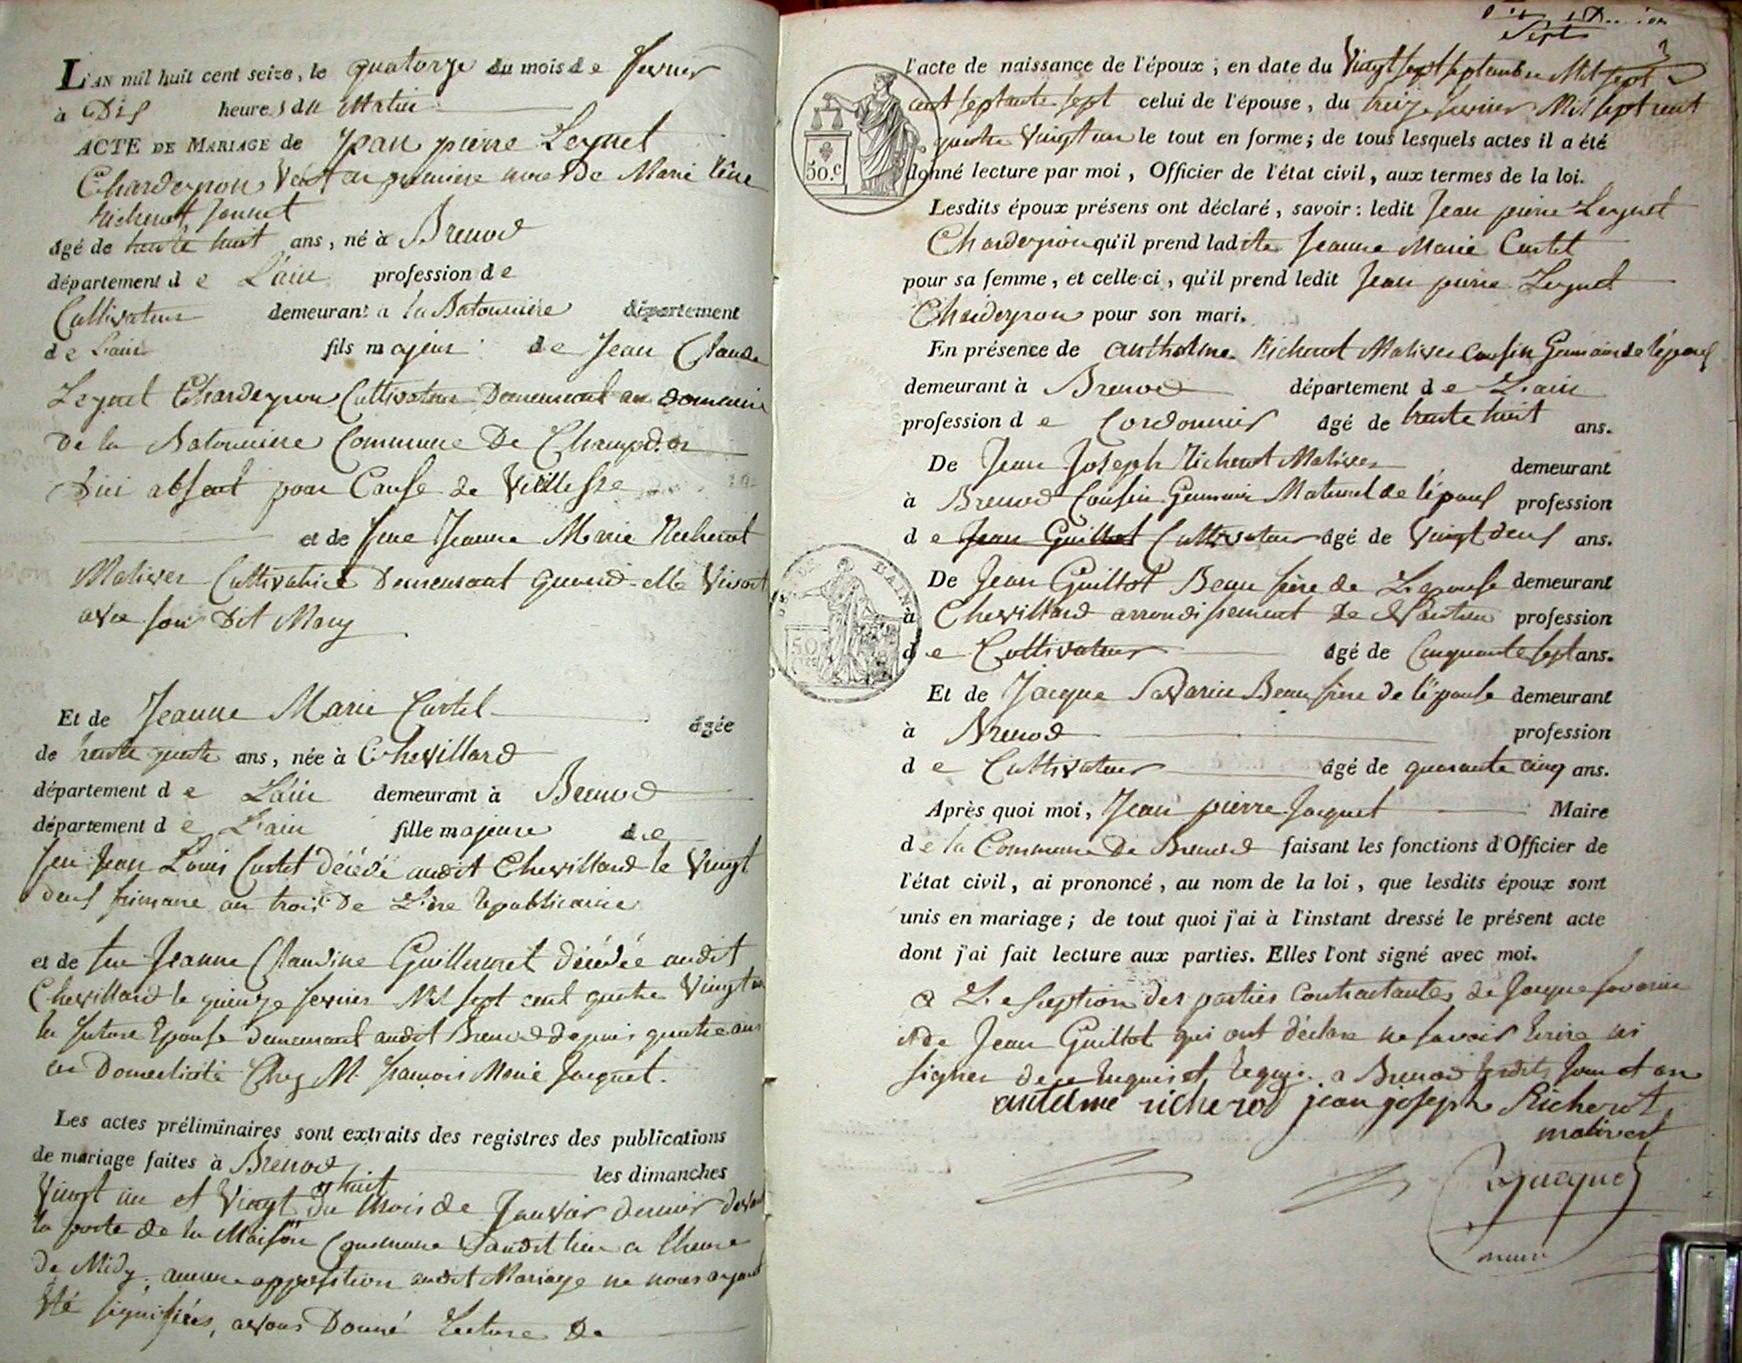 L'AN mil huit cent seize, le quatorze du mois de fevrier
à Dix heures du Matin
ACTE DE MARIAGE de Jean pierre Leynet
Charderron Veuf en premiere noce De Marie
Richerot Jannet
âgé de trente huit ans, né à Brenod
département de L'ain profession de
Cultivateur demeurant a la Batonniere département
de L'ain fils majeur de Jean Claude
Leynet Charderron Cultivateur Demeurant au domaine
de la Batonniere Commune De Champdor
D'ici absent pour Cause de Vieillesse
et de feue Jeanne Marie Richerot
Matives Cultivatrice Demeurant quand elle Vivoit
avec son Dit Mary
Et de Jeanne Marie Curtet âgée
de trente quatre ans, née à Chevillard
département de L'ain demeurant à Brenod
département de L'ain fille majeure de
feu Jean Louis Curtet décédé audit Chevillard le Vingt
deux frimaire an trois De L'ère republicaine
et de feue Jeanne Claudine Guillermet décédée audit
Chevillard le quinze fevrier Mil sept cent quatre Vingt un
la future Epouse demeurant audit Brenod depuis quatre ans
en Domesticité Chez M. françois Marie Jacquet.
Les actes préliminaires sont extraits des registres des publications
de mariage faites à Brenod les dimanches
Vingt un et Vingt huit Du Mois de Janvier dernier devant
la porte de la Maison Commune dudit lieu a l'heure
De Midy, aucune opposition audit Mariage ne nous ayant
été signifiées, avons Donné Lecture De
Sept
l'acte de naissance de l'époux ; en date du Vingt sept septembre Mil sept
cent septante sept celui de l'épouse, du treize fevrier Mil sept cent
quatre Vingt un le tout en forme ; de tous lesquels actes il a été
50.c
donné lecture par moi, Officier de l'état civil, aux termes de la loi.
Lesdits époux présens ont déclaré, savoir : ledit Jean pierre Leynet
Charderron qu'il prend ladite Jeanne Marie Curtet
pour sa femme, et celle-ci, qu'il prend ledit Jean pierre Leynet
Charderron pour son mari.
En présence de anthelme Richerot Matives Cousin Germain de l'époux
demeurant à Brenod département de L'ain
profession de Cordonnier âgé de trente huit ans.
De Jean Joseph Richerot Matives demeurant
à Brenod Cousin Germain Maternel de l'époux profession
de Jean Guillot Cultivateur âgé de Vingt deux ans.
De Jean Guillot Beau frère de L'epouse demeurant
à Chevillard arrondissement de Nantua profession
50
de Cultivateur âgé de Cinquante sept ans.
Et de Jacque Savarin Beau frère de l'épouse demeurant
à Brenod profession
de Cultivateur âgé de quarante cinq ans.
Après quoi moi, Jean pierre Jacquet Maire
de la Commune De Brenod faisant les fonctions d'Officier de
l'état civil, ai prononcé, au nom de la loi, que lesdits époux sont
unis en mariage ; de tout quoi j'ai à l'instant dressé le présent acte
dont j'ai fait lecture aux parties. Elles l'ont signé avec moi.
a L'eseption des parties Contractantes de Jacque savarin
et de Jean Guillot qui ont déclaré ne savoir Ecrire ni
signer de ce Enquis et Requis. a Brenod lesdits Jour et an
antelme richerod jean joseph Richerot
matives
Jacquet
maire